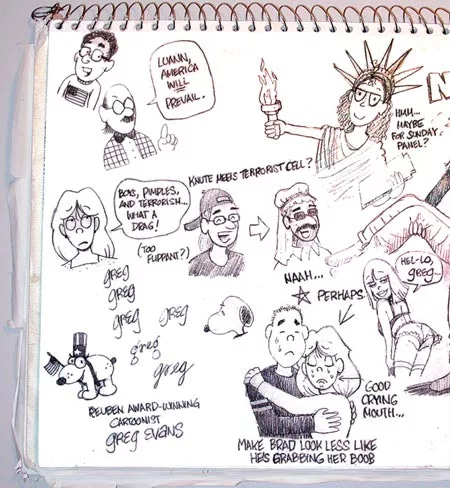 LUANN,
AMERICA
WILL
PREVAIL.
HMM...
MAYBE
FOR SUNDAY
PANEL?
KNUTE MEETS TERRORIST CELL?
BOYS, PIMPLES,
AND TERRORISM...
WHAT A
DRAG!
(TOO
FLIPPANT?)
HEL-LO,
greg...
NAAH...
PERHAPS
greg
greg
greg
greg
greg
greg
GOOD
CRYING
MOUTH...
REUBEN AWARD-WINNING
CARTOONIST
greg EVANS
MAKE BRAD LOOK LESS LIKE
HE'S GRABBING HER BOOB